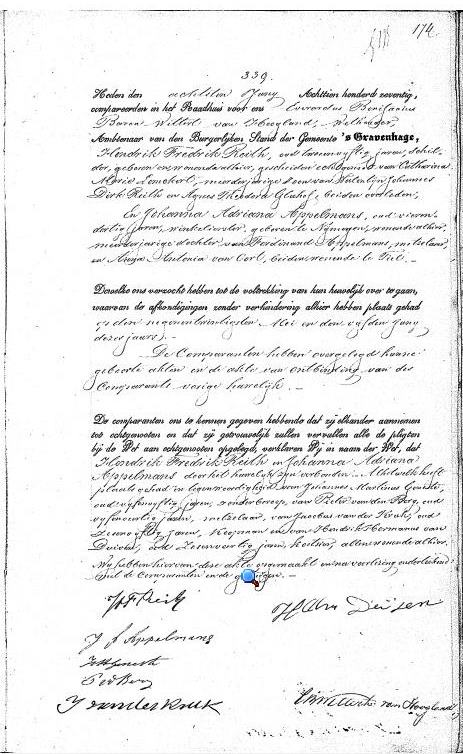 174
339.
Heden den achttien Juny Achttien honderd zeventig,
compareerden in het Raadhuis voor ons Everardus Bonifacius
Baron Wittert van Hoogland, Wethouder,
Ambtenaar van den Burgerlijken Stand der Gemeente 's Gravenhage,
Hendrik Fredrik Reith, oud jaren, schil-
der, geboren en wonende alhier, gescheiden echtgenoot van Catharina
Maria meerderjarige zoon van Valentijn Johannes
Dirk Reith en Agnes Theodora beiden overleden,
En Johanna Adriana Appelmans, oud vieren
dertig jaren, winkelierster, geboren te Nijmegen, wonende alhier,
meerderjarige dochter van Ferdinand Appelmans, metselaar
en Antonia van Oort, beiden wonende te Tiel.
Dewelke ons verzocht hebben tot de voltrekking van hun huwelijk over te gaan,
waarvan de afkondigingen zonder verhindering alhier hebben plaats gehad
op den negenentwintigsten Mei en den vijfden Juny
dezes jaars.
De Comparanten hebben overgelegd hunne
geboorte akten en de akte van ontbinding van des
Comparants vorige huwelijk.
De comparanten ons te kennen gegeven hebbende dat zij elkander aannemen
tot echtgenooten en dat zij getrouwelijk zullen vervullen alle de pligten
bij de Wet aan echtgenooten opgelegd, verklaren Wij in naam der Wet, dat
Hendrik Fredrik Reith en Johanna Adriana
Appelmans door het huwelijk zijn verbonden. Al hetwelk heeft
plaats gehad in tegenwoordigheid van Johannes Martinus
oud vijfenvijftig jaren, zonder beroep, van Pieter van den Berg, oud
vijfenveertig jaren, metselaar, van Jacobus van der Kruk, oud
jaren, Koopman en van Hendrik Hermanus van
Duivsen, oud jaren, allen wonende alhier.
Wij hebben hiervan deze akte opgemaakt en na voorlezing onderteekend
met de Comparanten en de getuigen.
H F Reith
J A Appelmans
P v d Berg
J van der Kruk
Wittert van Hoogland